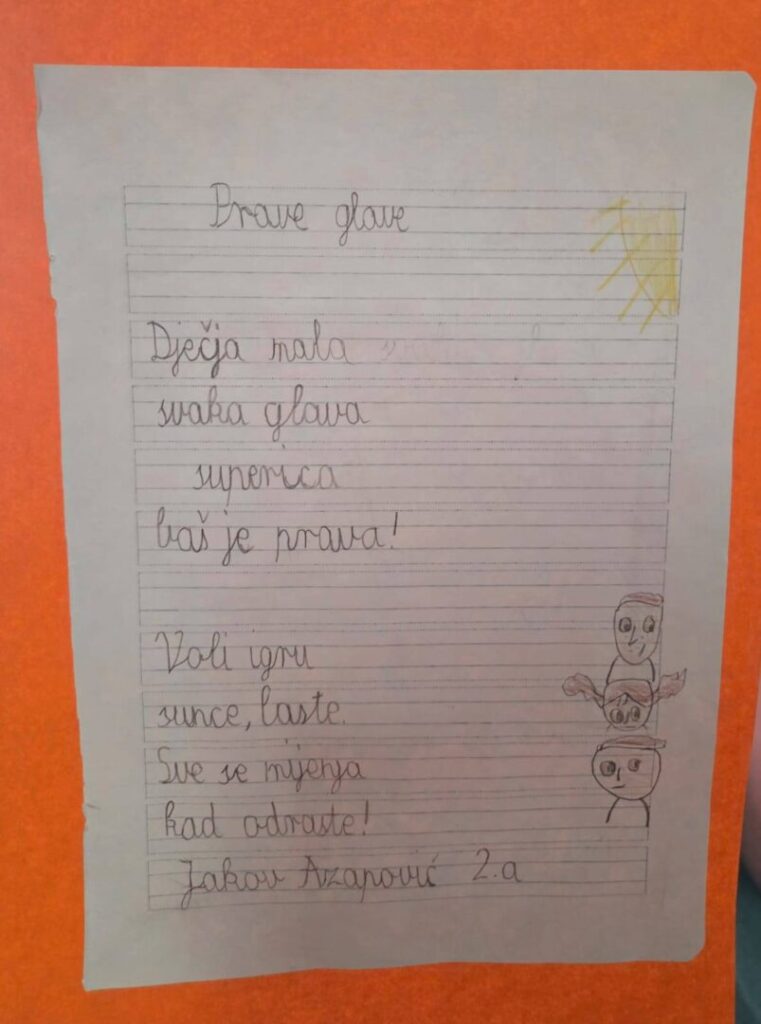 Prave glave
Dječja mala
svaka glava
superica
baš je prava!
Voli igru
sunce, laste.
Sve se mijenja
kad odraste!
Jakov Azapović 2.a